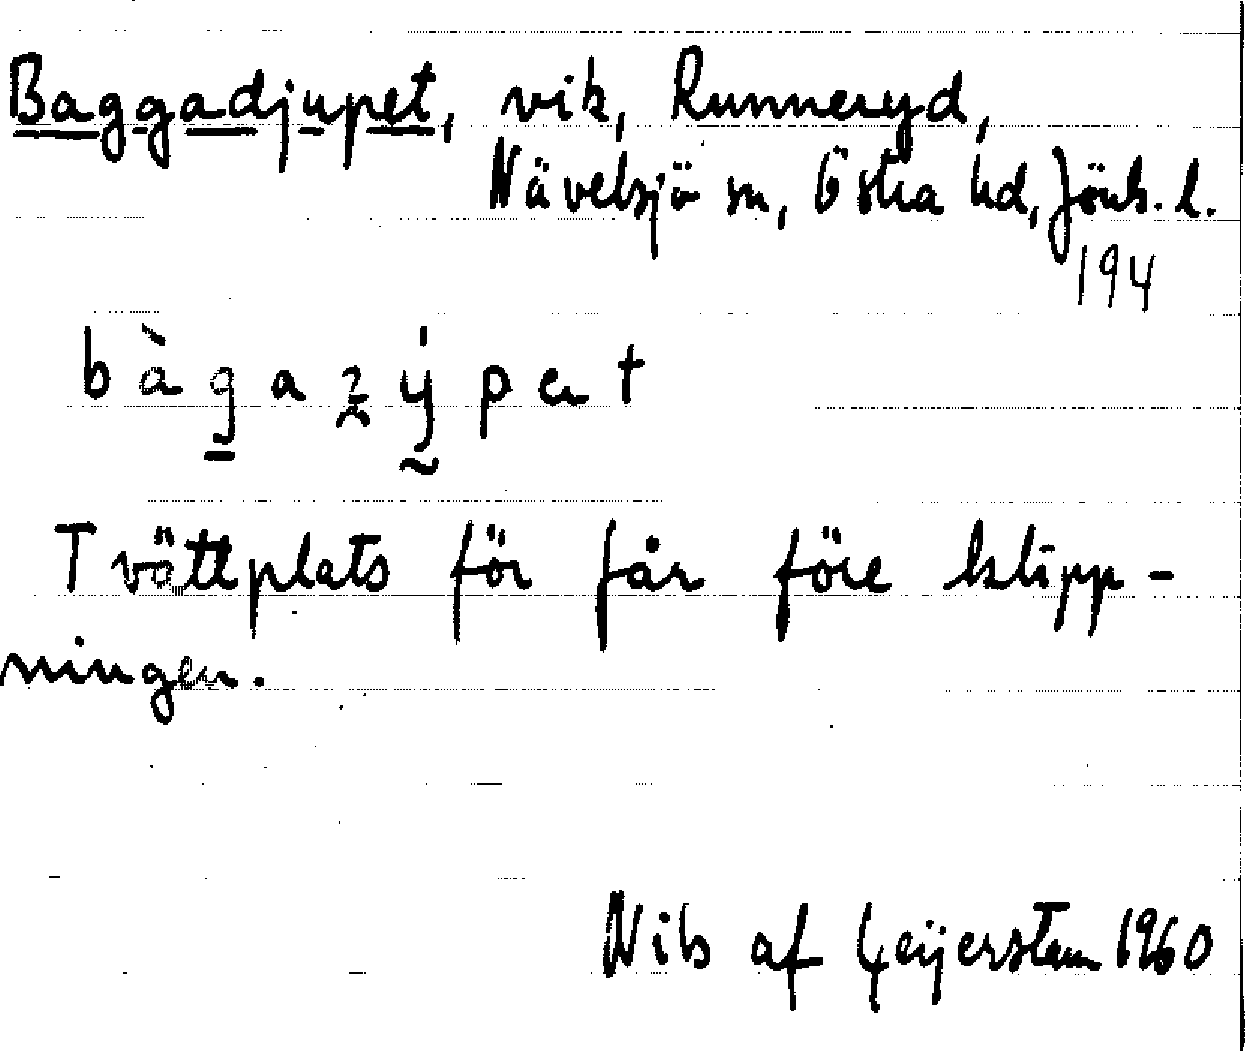 Baggadjupet, vik, Runneryd,
Nävelsjö sn, Östra hd, Jönk. l.
194
bàgaʒýpət
Tvättplats för får före klipp-
ningen.
Nils af Geijerstam 1960